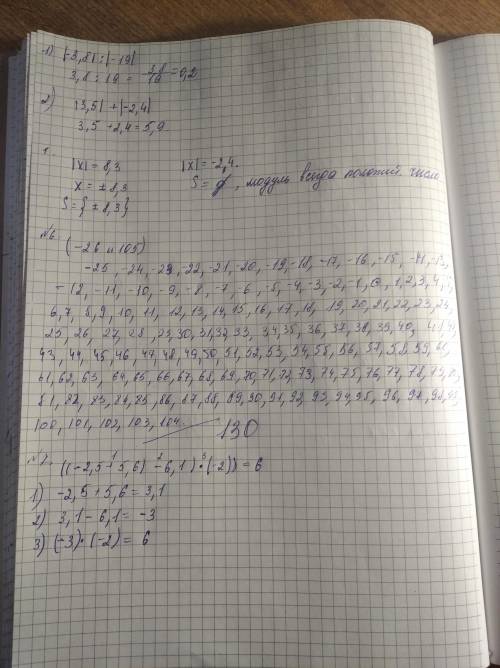 1) |-3,8| : |-19|
3,8 : 19 = 3,8/19 = 0,2
2) |3,5| + |-2,4|
3,5 + 2,4 = 5,9
1.
|x| = 8,3 |x| = -2,4.
x = ± 8,3 S = ∅, модуль всегда положит. число
S = {± 8,3}
№6. (-26 и 105)
-25, -24, -23, -22, -21, -20, -19, -18, -17, -16, -15, -14, -13,
-12, -11, -10, -9, -8, -7, -6, -5, -4, -3, -2, -1, 0, 1, 2, 3, 4, 5,
6, 7, 8, 9, 10, 11, 12, 13, 14, 15, 16, 17, 18, 19, 20, 21, 22, 23, 24,
25, 26, 27, 28, 29, 30, 31, 32, 33, 34, 35, 36, 37, 38, 39, 40, 41, 42,
43, 44, 45, 46, 47, 48, 49, 50, 51, 52, 53, 54, 55, 56, 57, 58, 59, 60,
61, 62, 63, 64, 65, 66, 67, 68, 69, 70, 71, 72, 73, 74, 75, 76, 77, 78, 79, 80,
81, 82, 83, 84, 85, 86, 87, 88, 89, 90, 91, 92, 93, 94, 95, 96, 97, 98, 99,
100, 101, 102, 103, 104. 130
№7. ((-2,5 + 5,6) - 6,1) · (-2)) = 6
1) -2,5 + 5,6 = 3,1
2) 3,1 - 6,1 = -3
3) (-3) · (-2) = 6